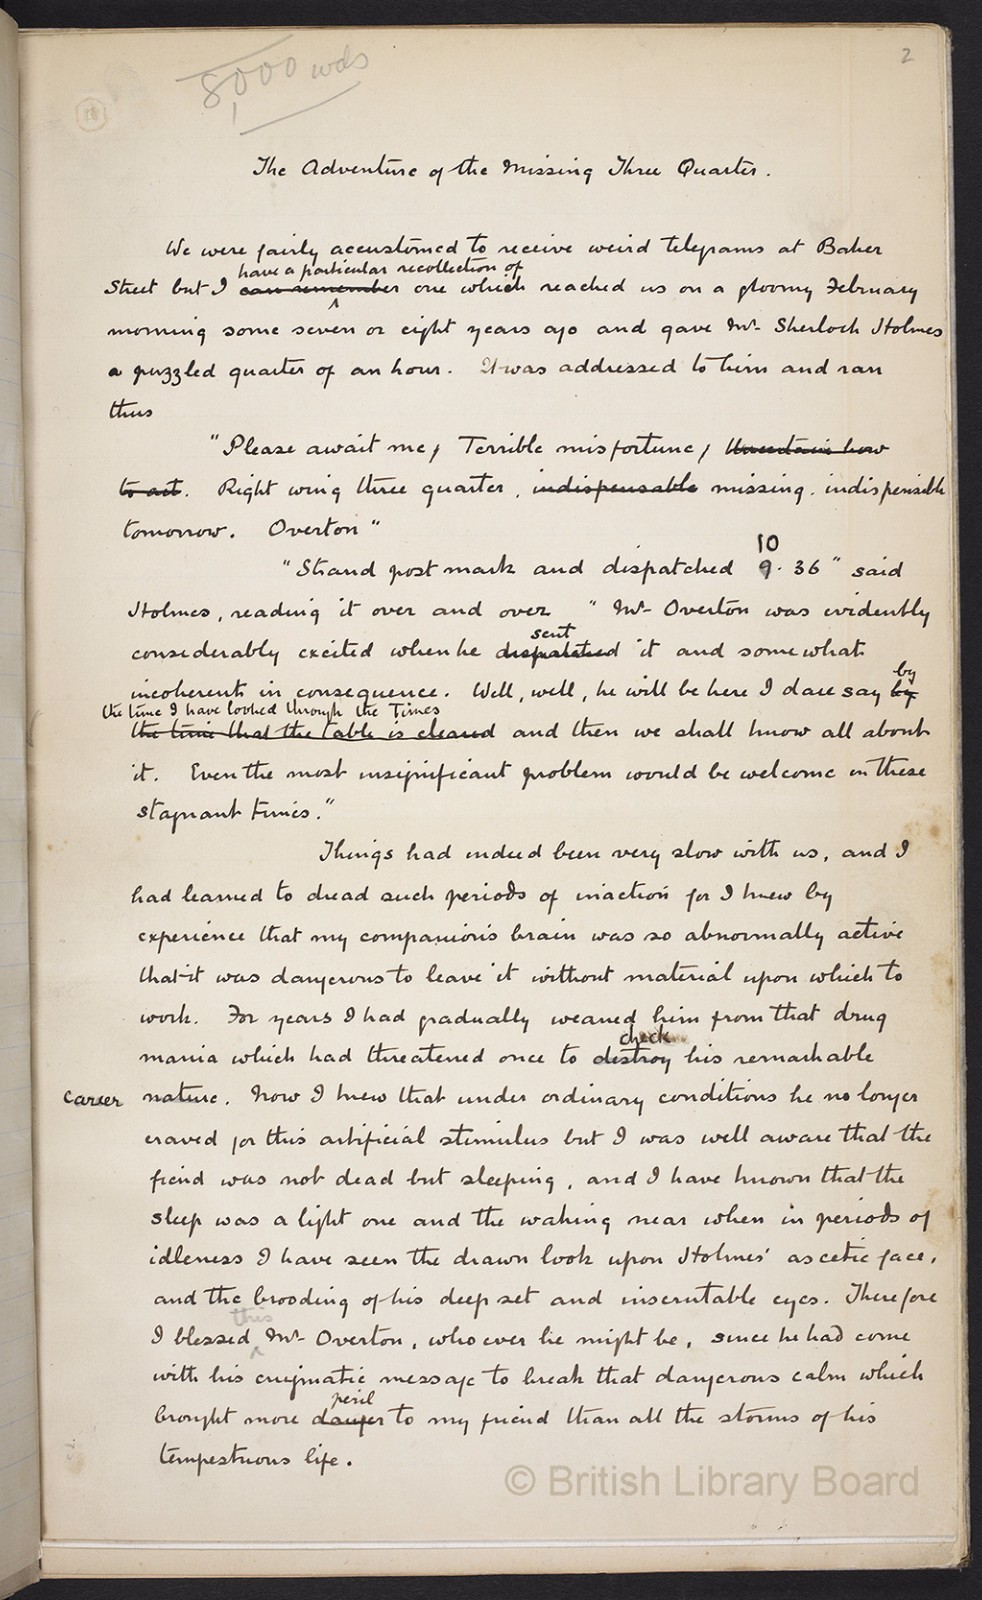 8,000 wds
2
The Adventure of the Missing Three Quarter.
We were fairly accustomed to receive weird telegrams at Baker
have a particular recollection of
Street but I can remember one which reached us on a gloomy February
morning some seven or eight years ago and gave Mr. Sherlock Holmes
a puzzled quarter of an hour. It was addressed to him and ran
thus
"Please await me, Terrible misfortune, Uncertain how
to act. Right wing three quarter, indispensable missing. indispensible
tomorrow. Overton"
10
"Strand post mark and dispatched 9.36" said
Holmes, reading it over and over "Mr. Overton was evidently
sent
considerably excited when he dispatched it and somewhat
by
incoherent in consequence. Well, well, he will be here I dare say by
the time I have looked through the Times
the time that the table is cleared and then we shall know all about
it. Even the most insignificant problem would be welcome in these
stagnant times."
Things had indeed been very slow with us, and I
had learned to dread such periods of inaction for I knew by
experience that my companion's brain was so abnormally active
that it was dangerous to leave it without material upon which to
work. For years I had gradually weaned him from that drug
check
mania which had threatened once to destroy his remarkable
career nature. Now I knew that under ordinary conditions he no longer
craved for this artificial stimulus but I was well aware that the
fiend was not dead but sleeping, and I have known that the
sleep was a light one and the waking near when in periods of
idleness I have seen the drawn look upon Holmes' ascetic face,
and the brooding of his deep set and inscrutable eyes. Therefore
this
I blessed Mr. Overton, whoever he might be, since he had come
with his enigmatic message to break that dangerous calm which
peril
brought more danger to my friend than all the storms of his
tempestuous life.
© British Library Board